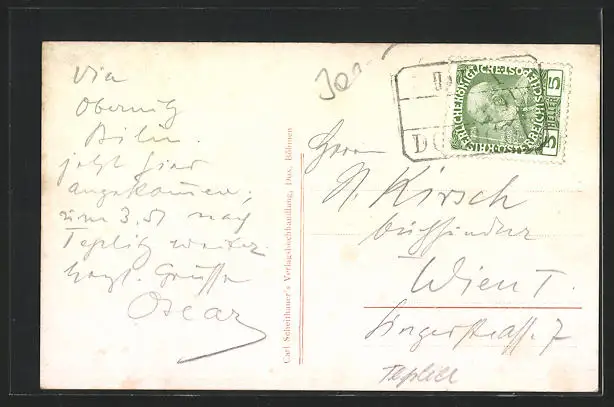 Via
Obernitz
Bilin.
jetzt hier
angekommen,
um 3.51 nach
Teplitz weiter.
herzl. Grüsse
Oscar
Carl Scheithauer's Verlagsbuchhandlung, Dux, Böhmen
5 HELLER 5
Herrn
A. Kirsch
buchbinder
Wien I.
Singerstrasse 7
Teplitz